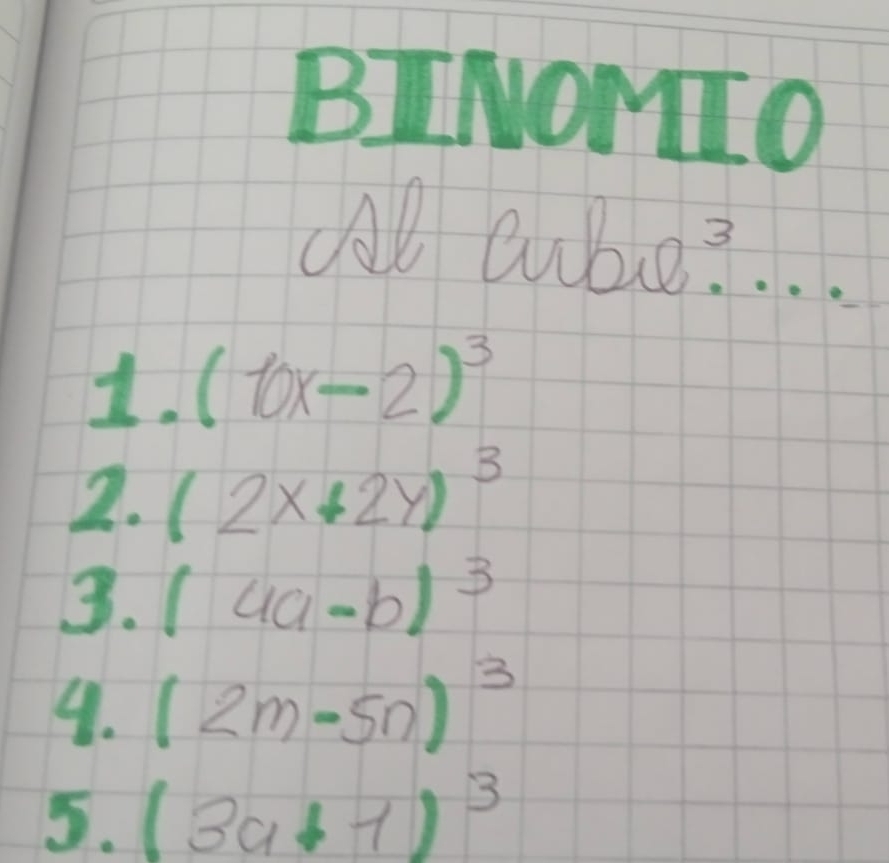 BINOMIO
Al cubo³....
1. (10x-2)³
2. (2x+2y)³
3. (4a-b)³
4. (2m-5n)³
5. (3a+1)³